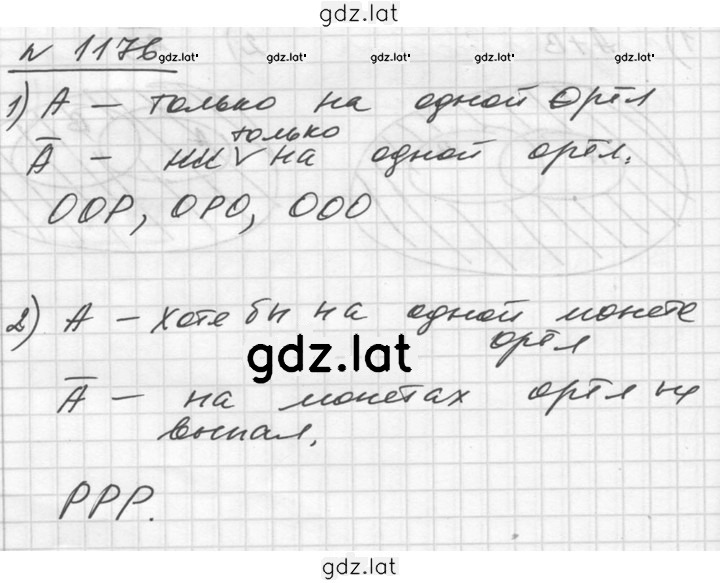 gdz.lat
№ 1176
gdz.lat gdz.lat gdz.lat gdz.lat gdz.lat
1) А – только на одной Орёл
только
Ā – ни ∨ на одной орёл.
ООР, ОРО, ООО
2) А – хотя бы на одной монете
орёл
gdz.lat
Ā – на монетах орёл не
выпал.
РРР.
gdz.lat